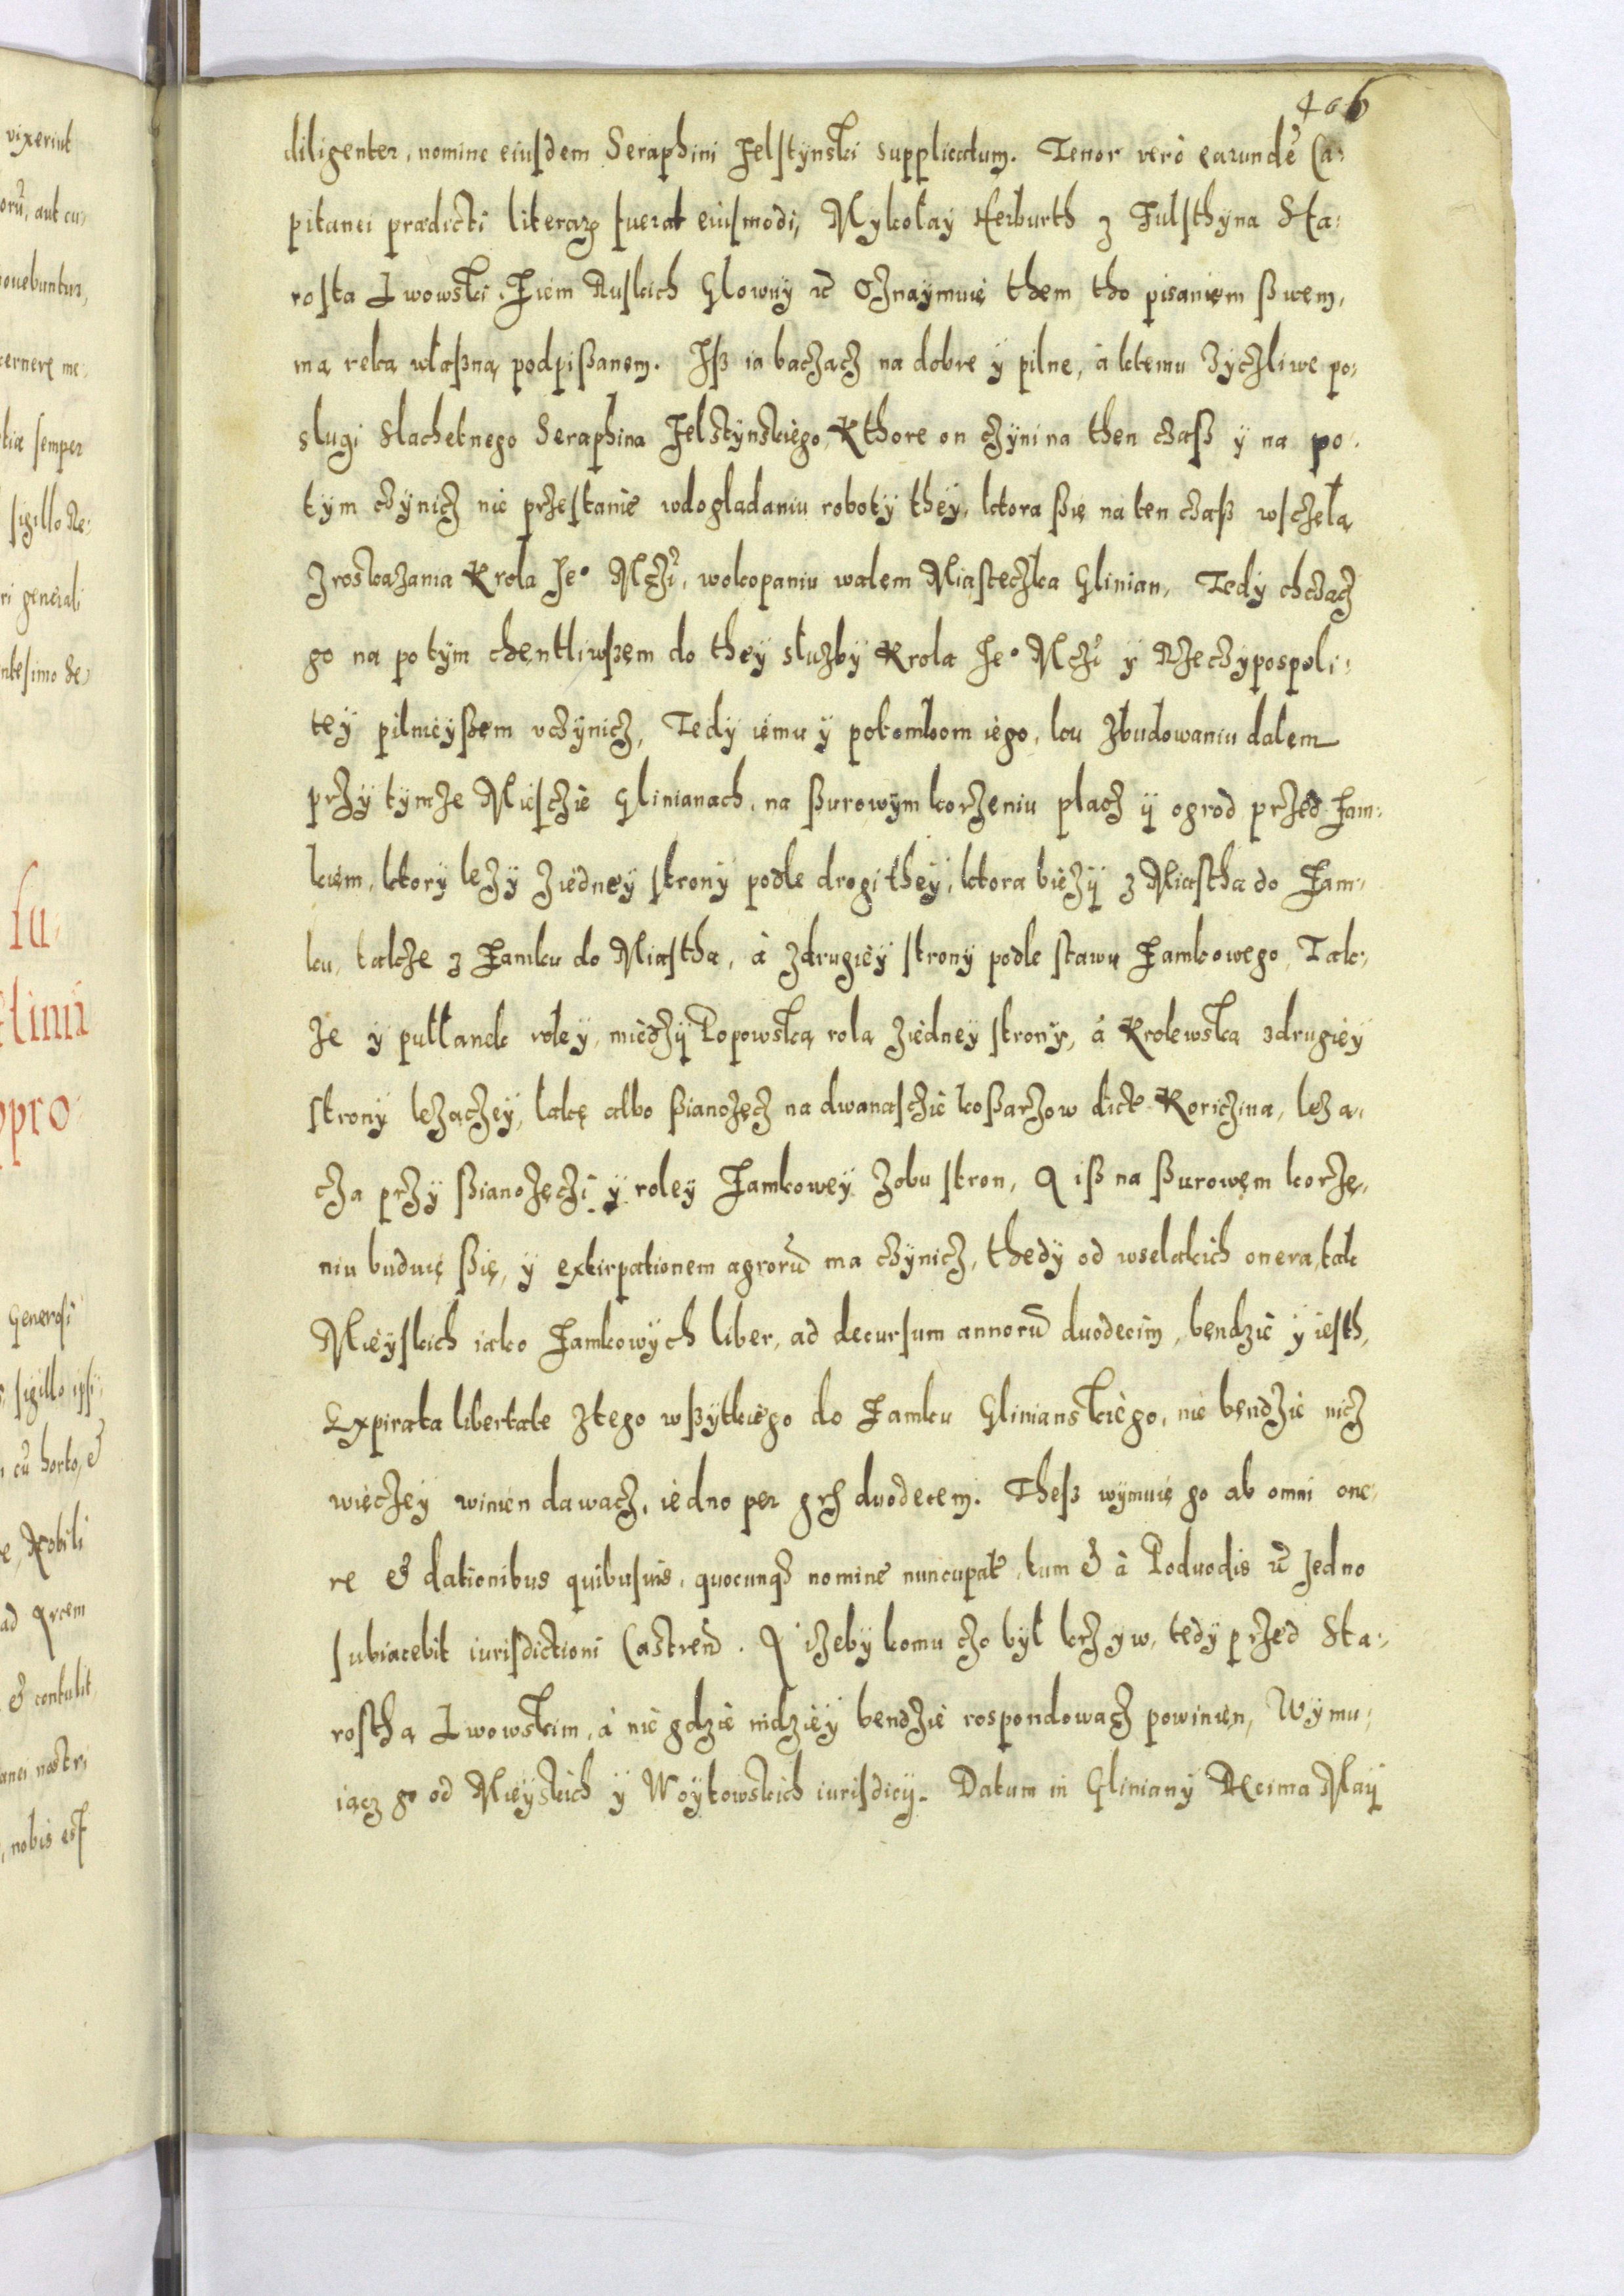 406
diligenter, nomine eiusdem Seraphini Felstynski supplicatum. Tenor verò earundẽ Ca:
pitanei prædicti literarꝫ fuerat eiusmodi, Mykołay Herburth z Fulsthyna Sta:
rosta Lwowski, Ziem Ruskich Glowny &c Oznaymuię them tho pisanięm ßwem,
mą ręką własną podpißanem. Iß ia baczącz na dobre ÿ pilne, à ktemu życzliwe po:
slugi Slachetnego Seraphina Felstynskiègo, Kthore on czÿni na then czaß ÿ na po:
tÿm czÿnicz nie przestanie wdogladaniu robotÿ theÿ, ktora ßię na ten czaß wsczęla
z roskazania Krola Je° Mczi, wokopaniu walem Miasteczka Glinian, Tedÿ chcżącz
go na potÿm chęntliwßem do theÿ służbÿ Krola Je° Mczi ÿ Rzeczypospoli:
teÿ pilnieÿßem vczÿnicz, Tedÿ iemu ÿ potomkom iego, ku zbudowaniu dalem
przÿ tÿmże Mieśczie Glinianach, na ßurowÿm korzeniu placz ÿ ogrod przed Zam:
kiem, ktorÿ leżÿ ziedneÿ stronÿ podle drogi theÿ, ktora bieżÿ z Miastha do Zam:
ku, także z Zamku do Miastha, à zdrugieÿ stronÿ podle stawu Zamkowego, Tak:
że ÿ pułłanek roleÿ, międzÿ Popowską rolą ziedneÿ stronÿ, à Krolewską zdrugieÿ
stronÿ leżączeÿ, łąkę albo ßianożęcz na dwanasczie koßarzow dict Koriczina, leżą:
cza przÿ ßianożęczi ÿ roleÿ Zamkoweÿ zobu stron, A iß na ßurowem korzę:
niu buduię ßię, ÿ extirpationem agrorũ ma czÿnicz, thedÿ od wselakich onera, tak
Mieÿskich iako Zamkowÿch liber, ad decursum annorũ duodecim, będzie ÿ iesth,
Expirata libertate ztego wßÿtkiego do Zamku Glinianskiègo, nie będzie nicz
więczeÿ winien dawacz, iedno per grß duodecem. Theß wÿmuię go ab omni one:
re & dationibus quibusuis, quocunqꝫ nomine nuncupat, tum & à Poduodis &c Jedno
subiacebit iurisdictioni Castreñ. A iżebÿ komu czo bÿł krzÿw, tedÿ przed Sta:
rosthą Lwowskim, à nie gdzie indzieÿ bendzie respondowacz powinien, Wÿmu:
iącz go od Mieÿskich ÿ Woÿtowskich iurisdicÿ. Datum in Glinianÿ Decima Maÿ